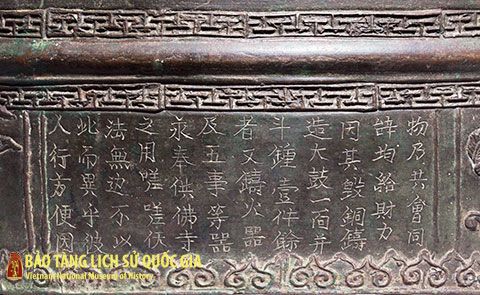 物乃共會同
均給財力
因其毀銅鑄
造大鼓一面并
斗鍾壹件餘
者又鑄火器
及五事等器
永奉供佛寺
之用嗟嗟仸
法無边不以
此而異乎彼
人行方便因
BẢO TÀNG LỊCH SỬ QUỐC GIA
Vietnam National Museum of History